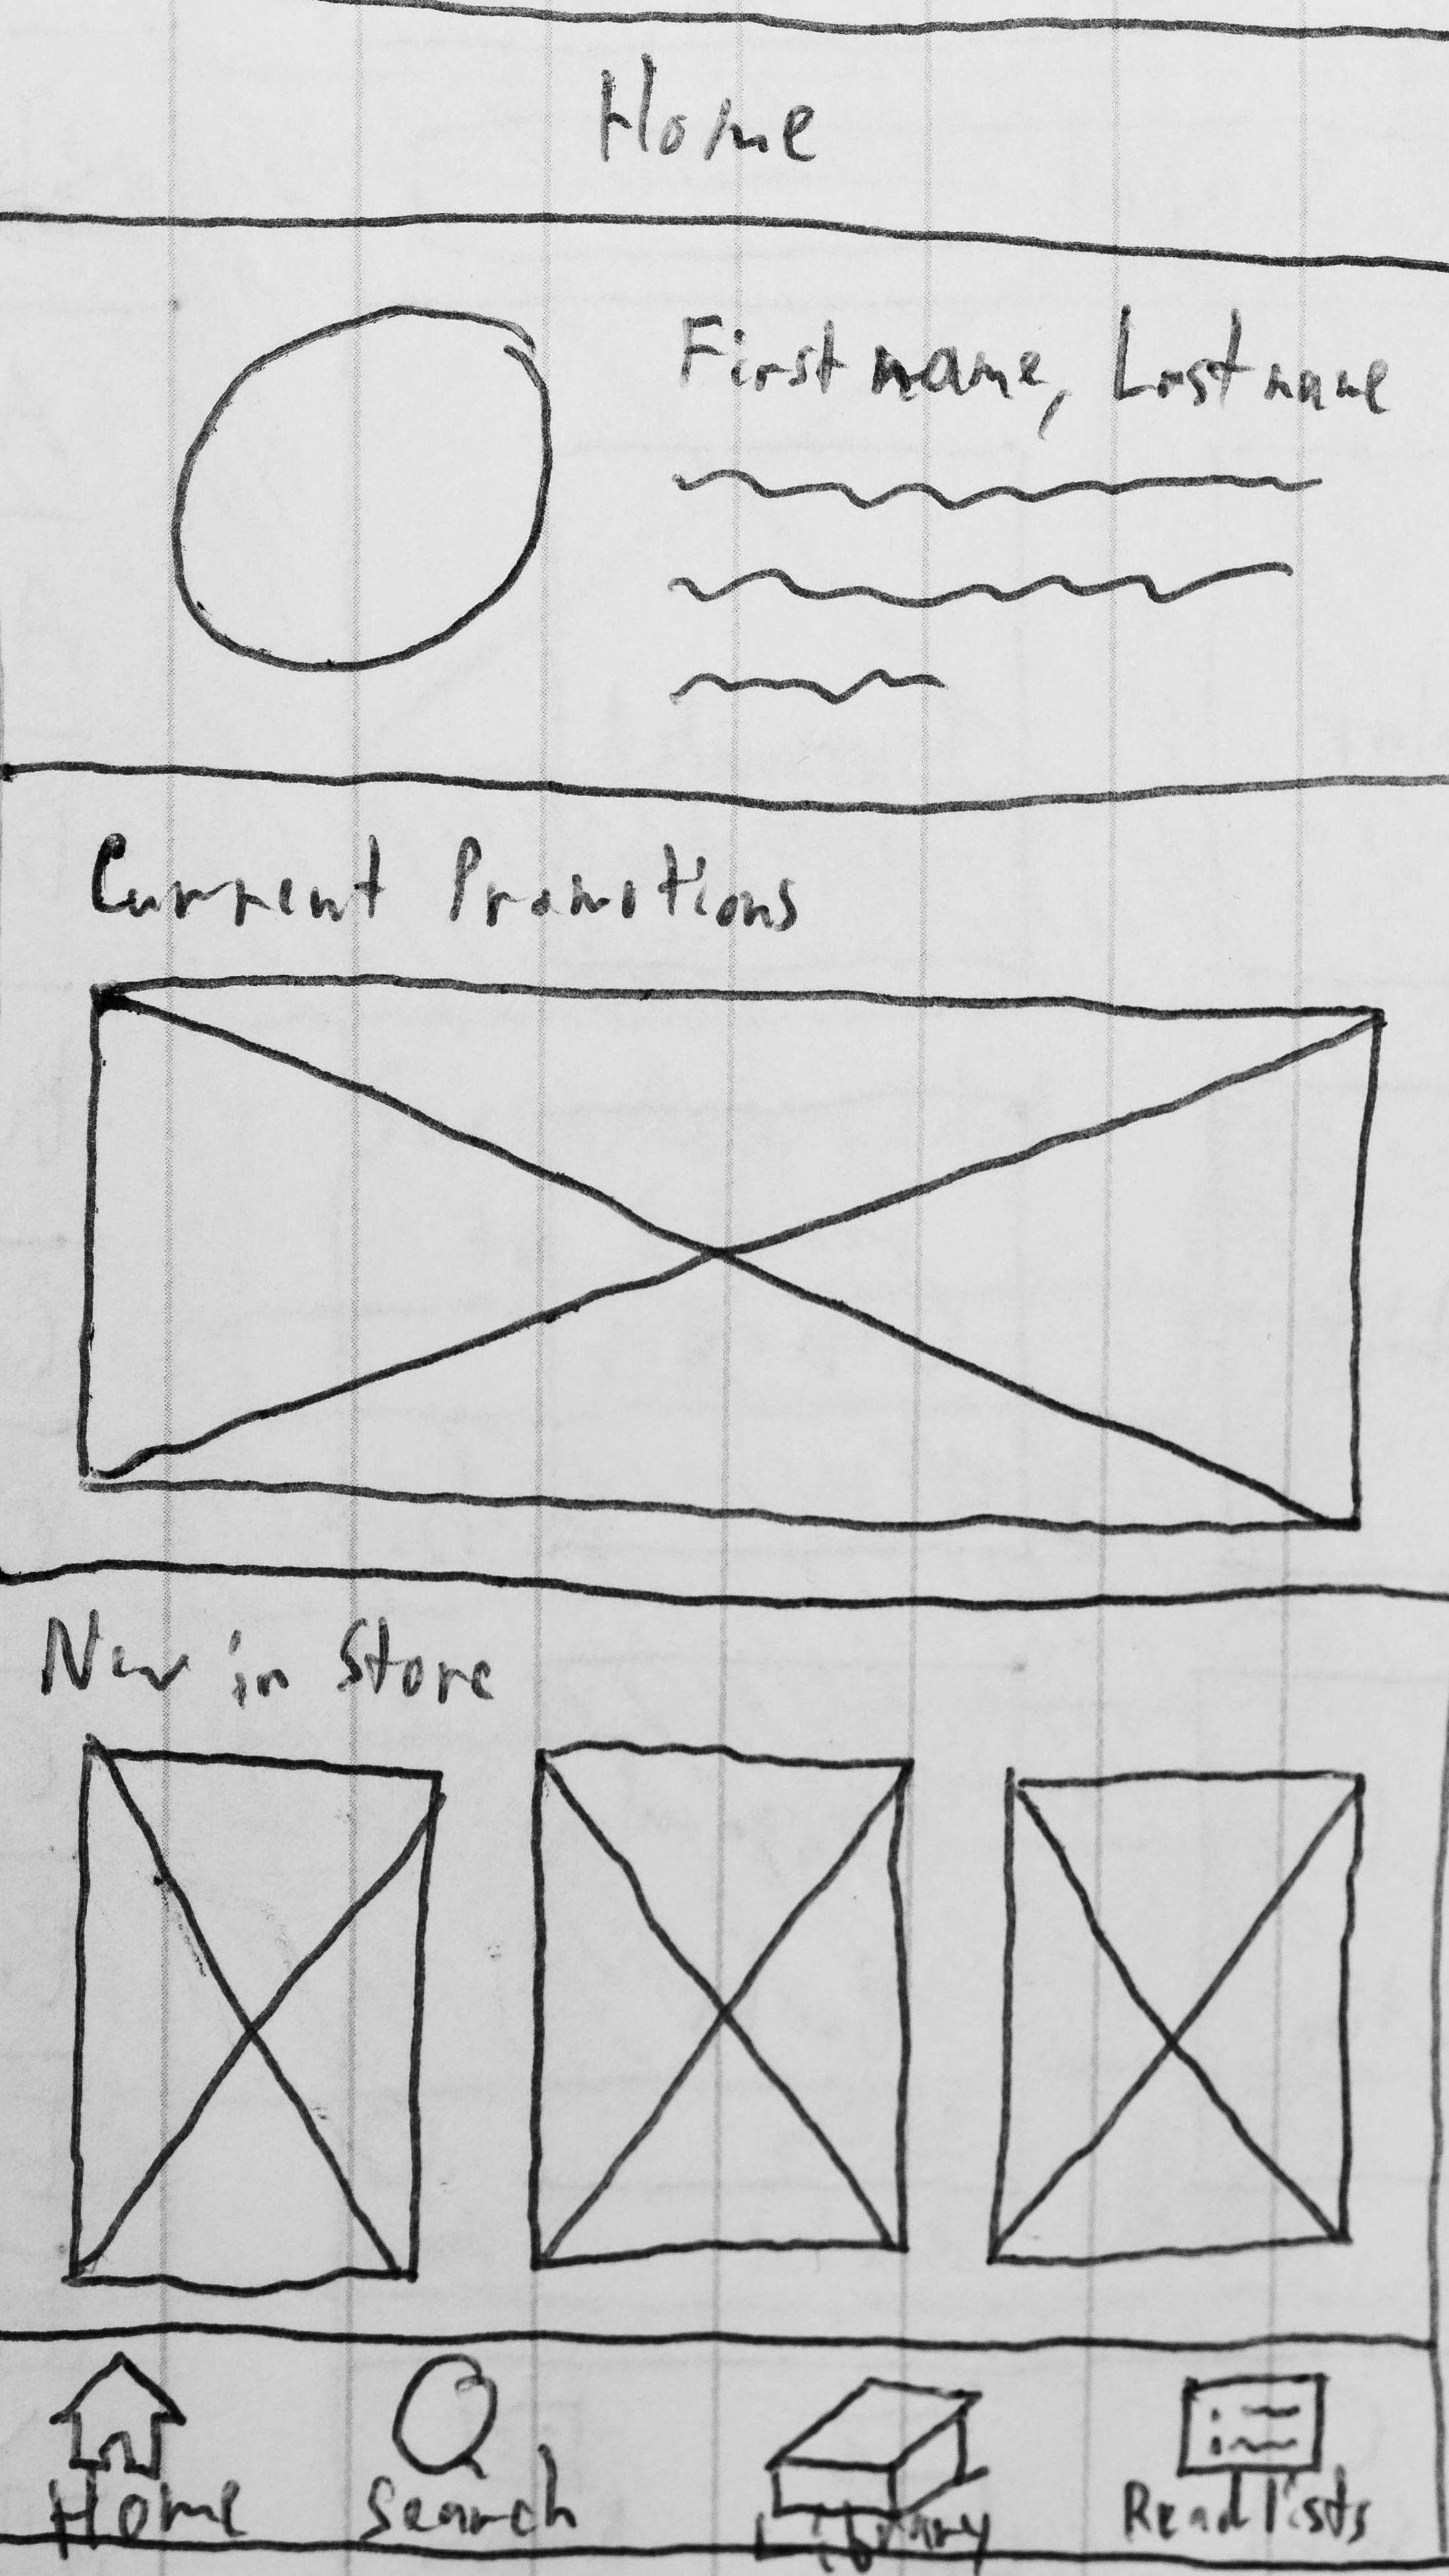 Home
Firstname, Lastname
Current Promotions
New in Store
Home Search Library Readlists